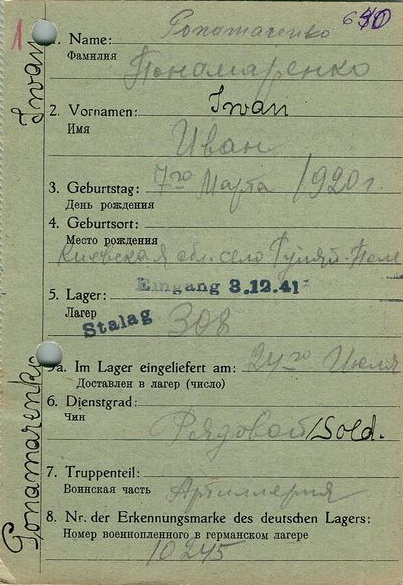 1
650
Iwan
Ponomarenko
1. Name:
Фамилия
Пономаренко
2. Vornamen: Iwan
Имя
Иван
3. Geburtstag: 7го Марта 1920 г.
День рождения
4. Geburtsort:
Место рождения
Киевская обл. село Гуляй-Поле
Eingang 8.12.41
5. Lager:
Лагер
Stalag 308
5a. Im Lager eingeliefert am: 24го Июля
Доставлен в лагер (число)
6. Dienstgrad:
Чин
Рядовой/Sold.
Ponamarenko
7. Truppenteil:
Воинская часть Артиллерия
8. Nr. der Erkennungsmarke des deutschen Lagers:
Номер военнопленного в германском лагере
10245